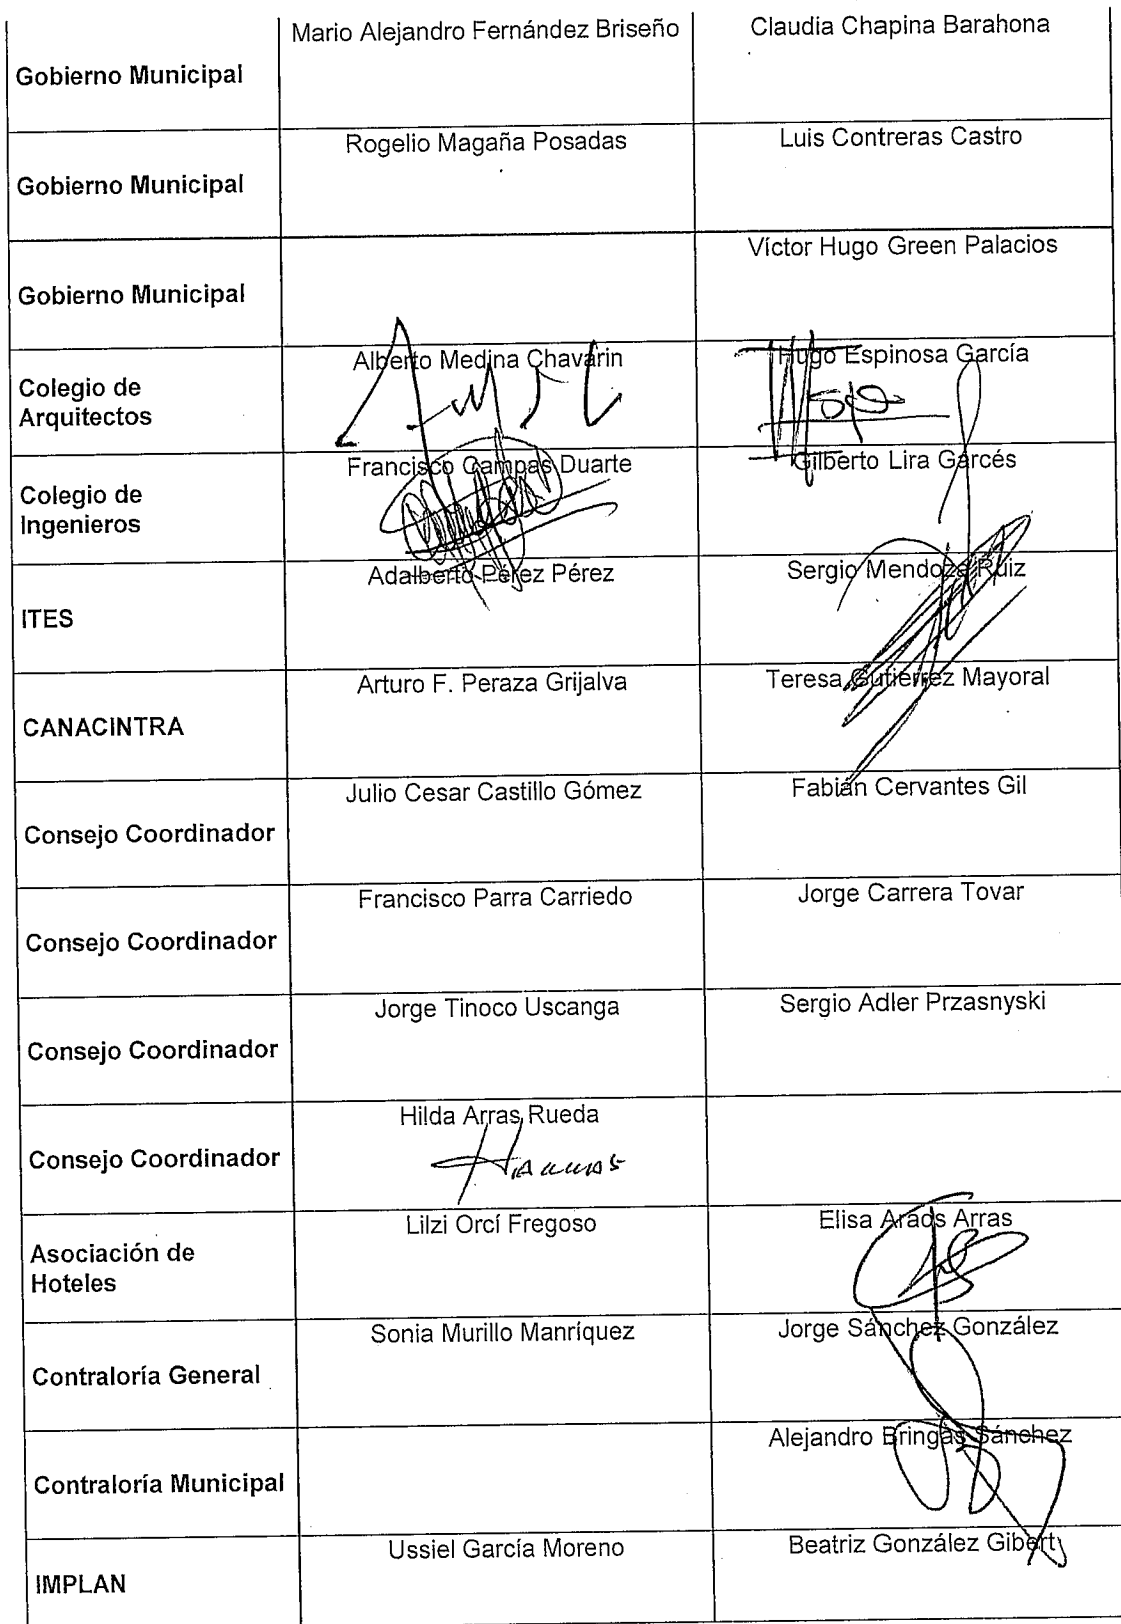 Mario Alejandro Fernández Briseño
Claudia Chapina Barahona
Gobierno Municipal
Rogelio Magaña Posadas
Luis Contreras Castro
Gobierno Municipal
Víctor Hugo Green Palacios
Gobierno Municipal
Alberto Medina Chavarin
Hugo Espinosa García
Colegio de
Arquitectos
Francisco Campas Duarte
Gilberto Lira Garcés
Colegio de
Ingenieros
Adalberto Pérez Pérez
Sergio Mendoza Ruiz
ITES
Arturo F. Peraza Grijalva
Teresa Gutiérrez Mayoral
CANACINTRA
Julio Cesar Castillo Gómez
Fabián Cervantes Gil
Consejo Coordinador
Francisco Parra Carriedo
Jorge Carrera Tovar
Consejo Coordinador
Jorge Tinoco Uscanga
Sergio Adler Przasnyski
Consejo Coordinador
Hilda Arras Rueda
Consejo Coordinador
Lilzi Orcí Fregoso
Elisa Araos Arras
Asociación de
Hoteles
Sonia Murillo Manríquez
Jorge Sánchez González
Contraloría General
Alejandro Bringas Sánchez
Contraloría Municipal
Ussiel García Moreno
Beatriz González Gibert
IMPLAN